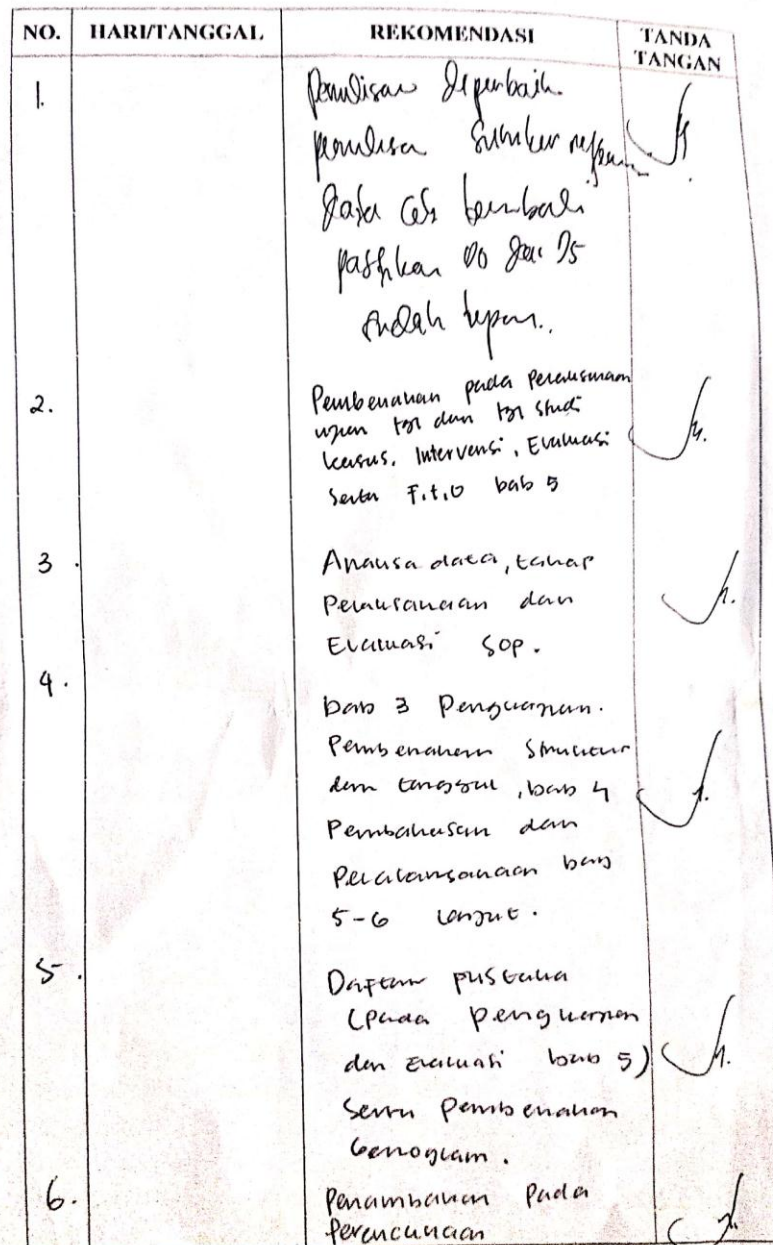 NO. HARI/TANGGAL REKOMENDASI TANDA TANGAN
1. Penulisan diperbaiki
penulisan Sumber
Data cek kembali
pastikan DO dan DS
sudah
2. Pembenahan pada
tgl dan tgl studi
kasus, Intervensi, Evaluasi
serta F.t.U bab 5
3. Analisa data, tahap
Pelaksanaan dan
Evaluasi SOP.
4. bab 3 Pengkajian.
Pembenahan Struktur
dan tanggal, bab 4
Pembahasan dan
bab
5-6 lanjut.
5. Daftar pustaka
(pada pengkajian
dan Evaluasi bab 5)
Serta pembenahan
Genogram.
6. Penambahan pada
Perencanaan